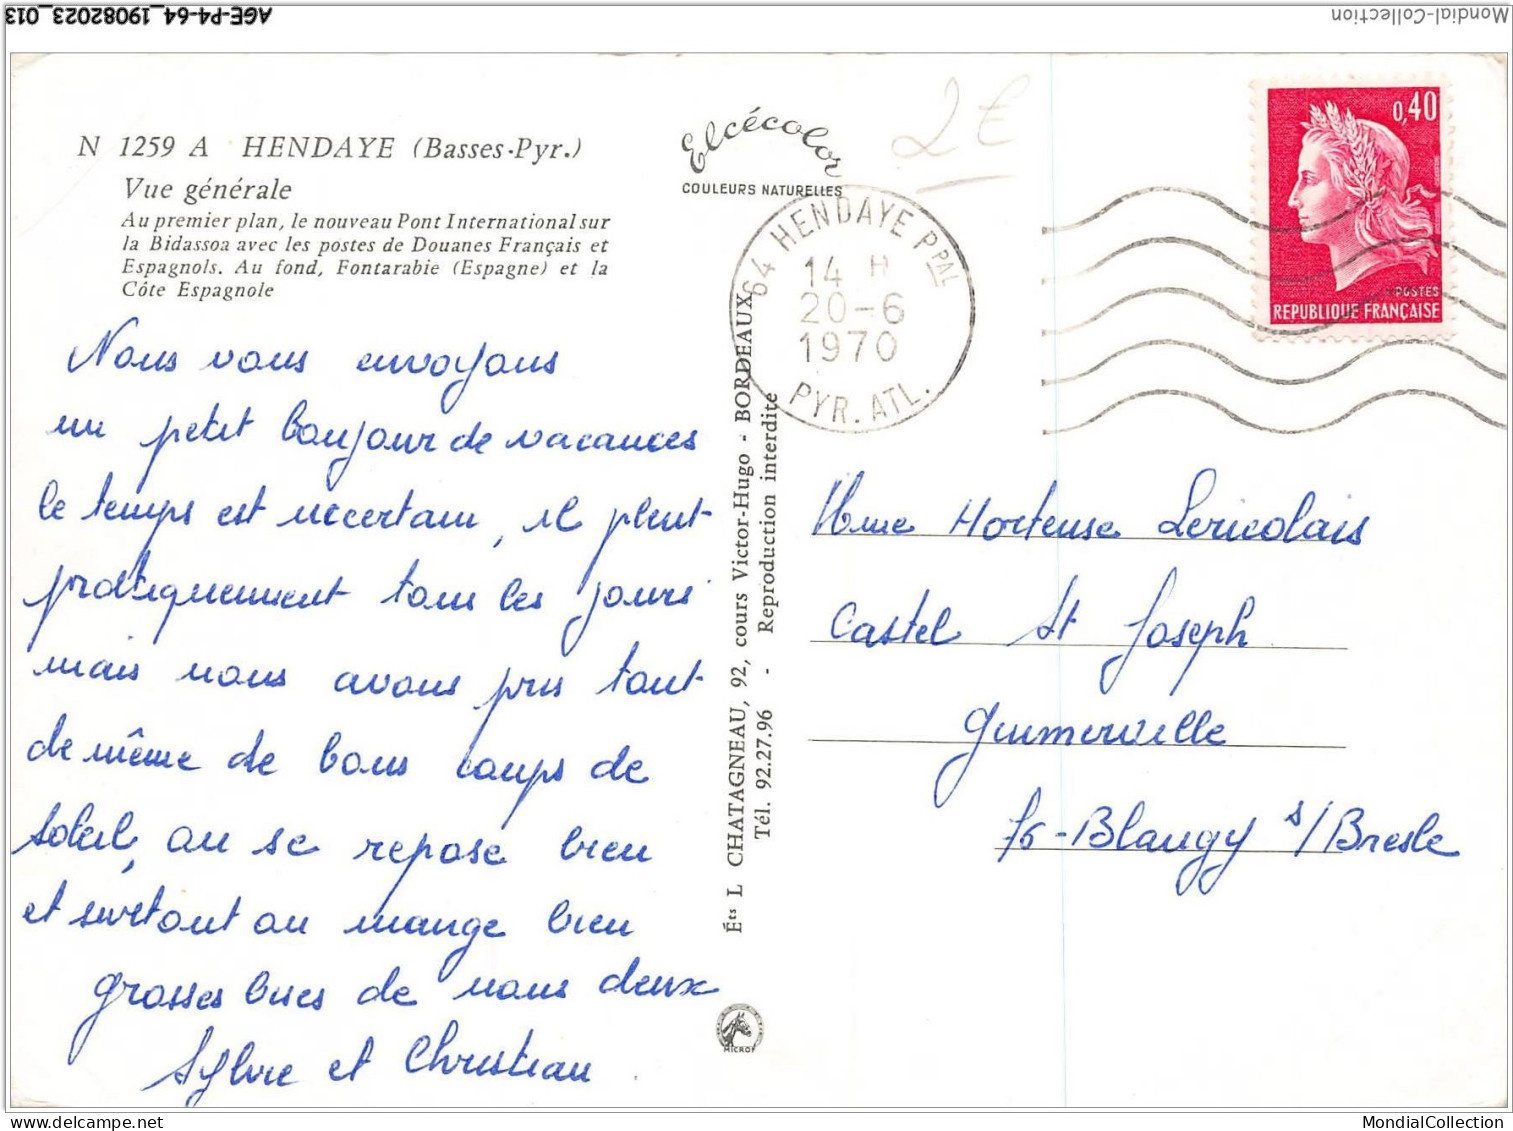 AGE-P4-64_19082023_013
Mondial-Collection
N 1259 A HENDAYE (Basses-Pyr.)
Vue générale
Au premier plan, le nouveau Pont International sur
la Bidassoa avec les postes de Douanes Français et
Espagnols. Au fond, Fontarabie (Espagne) et la
Côte Espagnole
Nous vous envoyons
un petit bonjour de vacances
le temps est incertain, il pleut
pratiquement tous les jours
mais nous avons pris tout
de même de bons coups de
soleil, on se repose bien
et surtout on mange bien
grosses bises de nous deux
Sylvie et Christian.
Elcécolor
COULEURS NATURELLES
Éts L CHATAGNEAU, 92, cours Victor-Hugo - BORDEAUX
Tél. 92.27.96 - Reproduction interdite
MICROF
2€
64 HENDAYE PPAL
14 H
20-6
1970
PYR. ATL.
0,40
POSTES
REPUBLIQUE FRANÇAISE
Mme Hortense Lericolais
Castel St Joseph
Guimerville
76-Blangy s/Bresle
MondialCollection